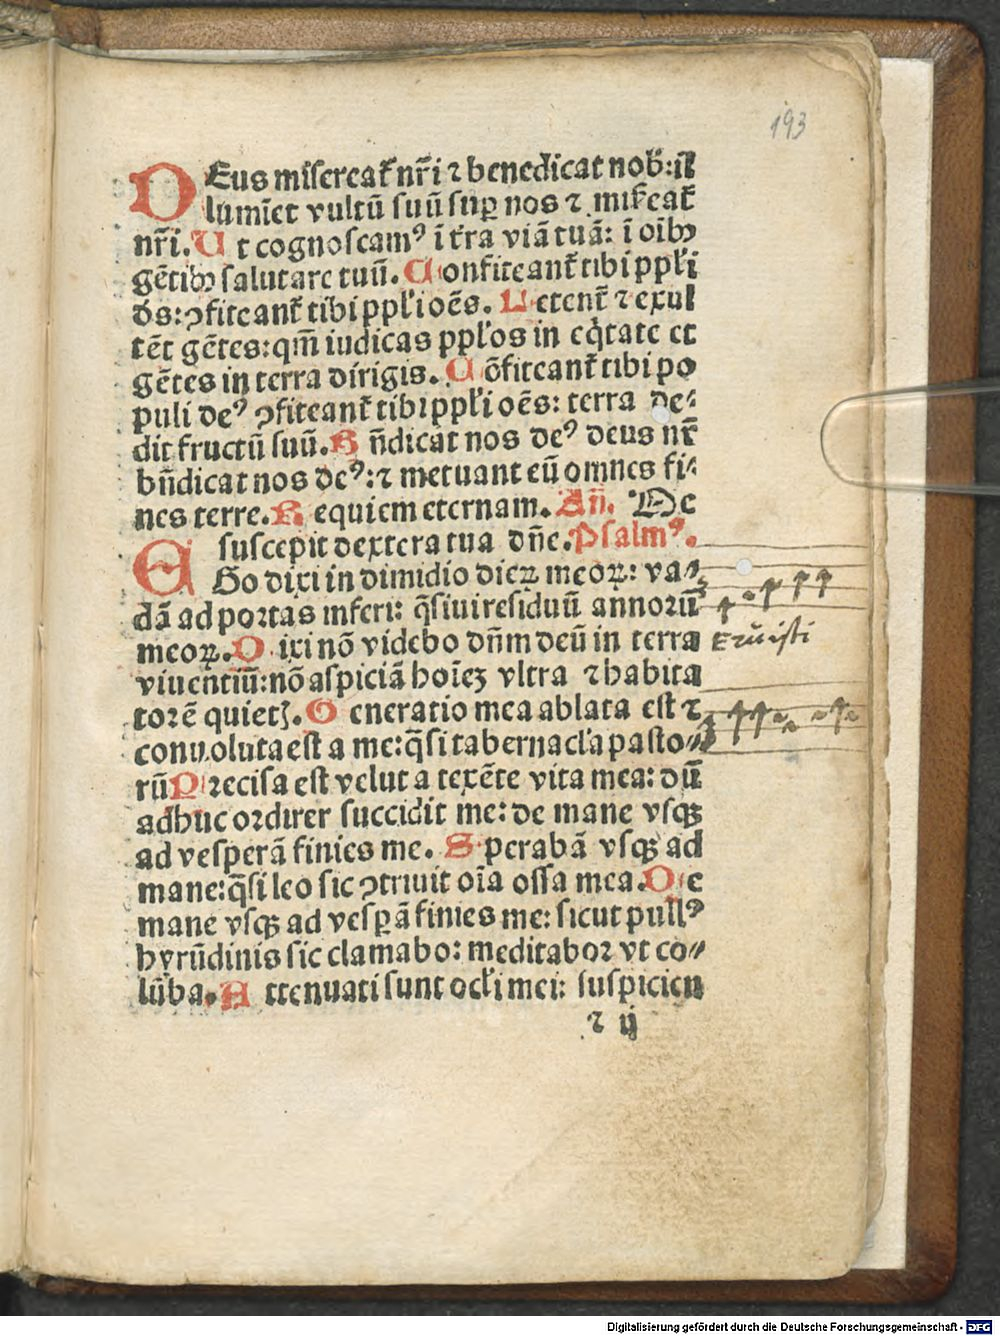 193
DEus misereat̃ nr̃i ⁊ benedicat nob̃: il
lumīet vultū suū suꝑ nos ⁊ mis̃eat̃
nr̃i. Ut cognoscamꝰ ī tr̃ra viā tuā: ī oībꝫ
gētibꝫ salutare tuū. Confiteant̃ tibi ppl̃i
ds: ꝯfiteant̃ tibi ppl̃i oēs. Letent̃ ⁊ exul
tēt gētes: qm̄ iudicas ppl̃os in eq̇tate et
gētes in terra dirigis. Cōfiteant̃ tibi po
puli deꝰ ꝯfiteant̃ tibi ppl̃i oēs: terra de⸗
dit fructū suū. Bn̄dicat nos deꝰ deus nr̃
bn̄dicat nos deꝰ: ⁊ metuant eū omnes fi⸗
nes terre. Requiem eternam. Añ. Me
suscepit dextera tua dn̄e. Psalmꝰ.
EGo dixi in dimidio dieꝝ meoꝝ: va⸗
dā ad portas inferi: q̄siui residuū annoꝛū
meoꝝ. Dixi nō videbo dn̄m deū in terra
Eruisti
viuentiū: nō aspiciā hoīeꝫ vltra ⁊ habita
toꝛē quietꝭ. Generatio mea ablata est ⁊
conuoluta est a me: q̄si tabernacl̃a pasto⸗
rū Precisa est velut a texēte vita mea: dū
adhuc oꝛdirer succidit me: de mane vsqꝫ
ad vesperā finies me. Sperabā vsqꝫ ad
mane: q̄si leo sic ꝯtriuit oīa ossa mea. De
mane vsqꝫ ad vesꝑā finies me: sicut pullꝰ
hyrūdinis sic clamabo: meditaboꝛ vt co⸗
lūba. Attenuati sunt ocl̃i mei: suspicien
⁊ ij
Digitalisierung gefördert durch die Deutsche Forschungsgemeinschaft - DFG